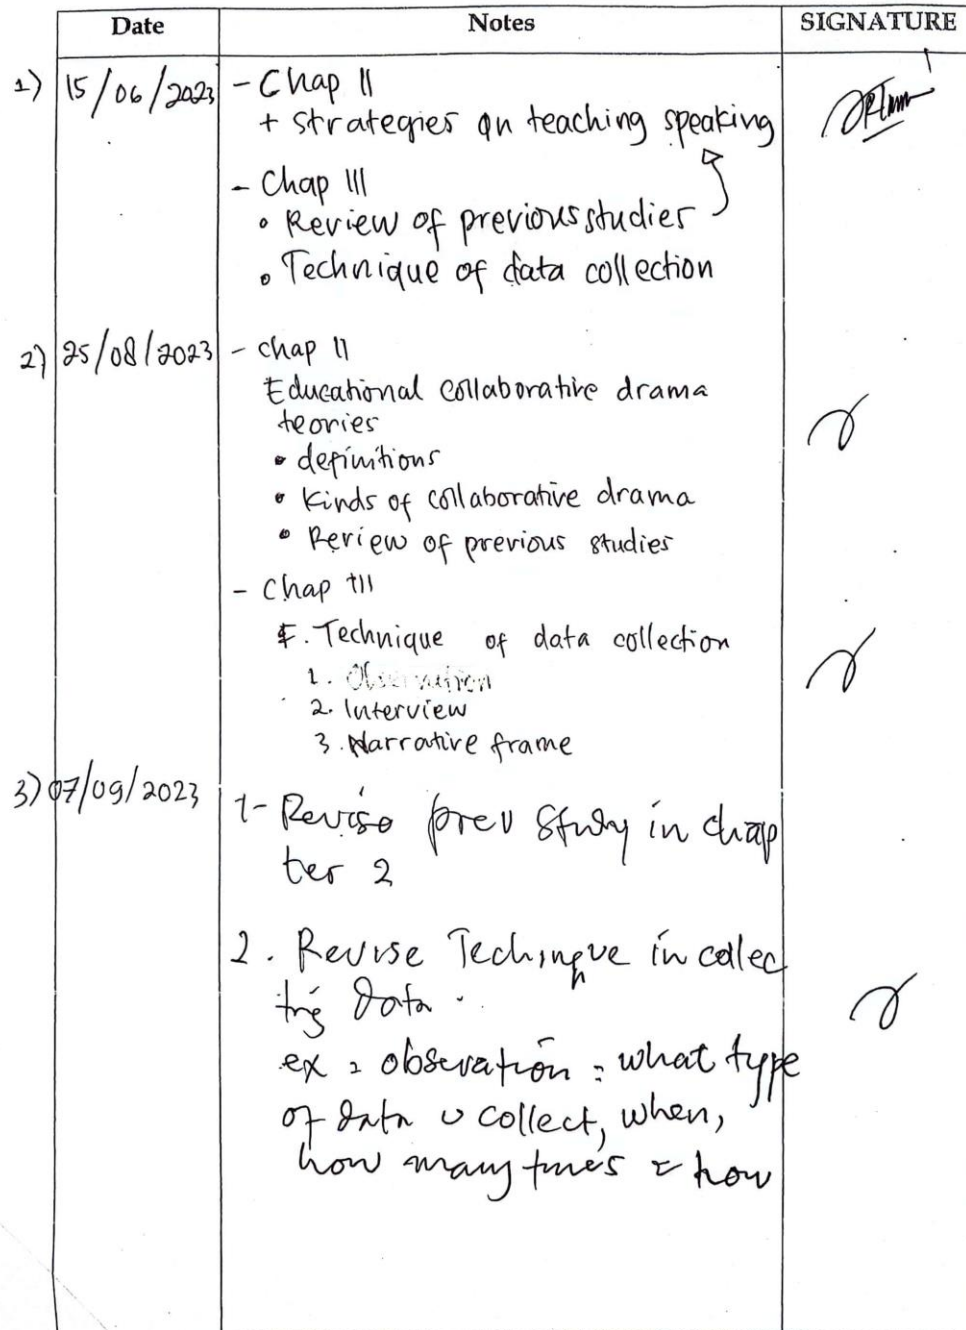 Date Notes SIGNATURE
1) 15/06/2023 - Chap II
+ strategies on teaching speaking
- Chap III
• Review of previous studies
• Technique of data collection
2) 25/08/2023 - chap II
Educational collaborative drama
teories
• definitions
• Kinds of collaborative drama
• Review of previous studies
- Chap III
F. Technique of data collection
1. Observation
2. Interview
3. Narrative frame
3) 07/09/2023 1- Revise prev study in chap
ter 2
2. Revise Technique in collec
ting data.
ex : observation : what type
of data u collect, when,
how many times & how